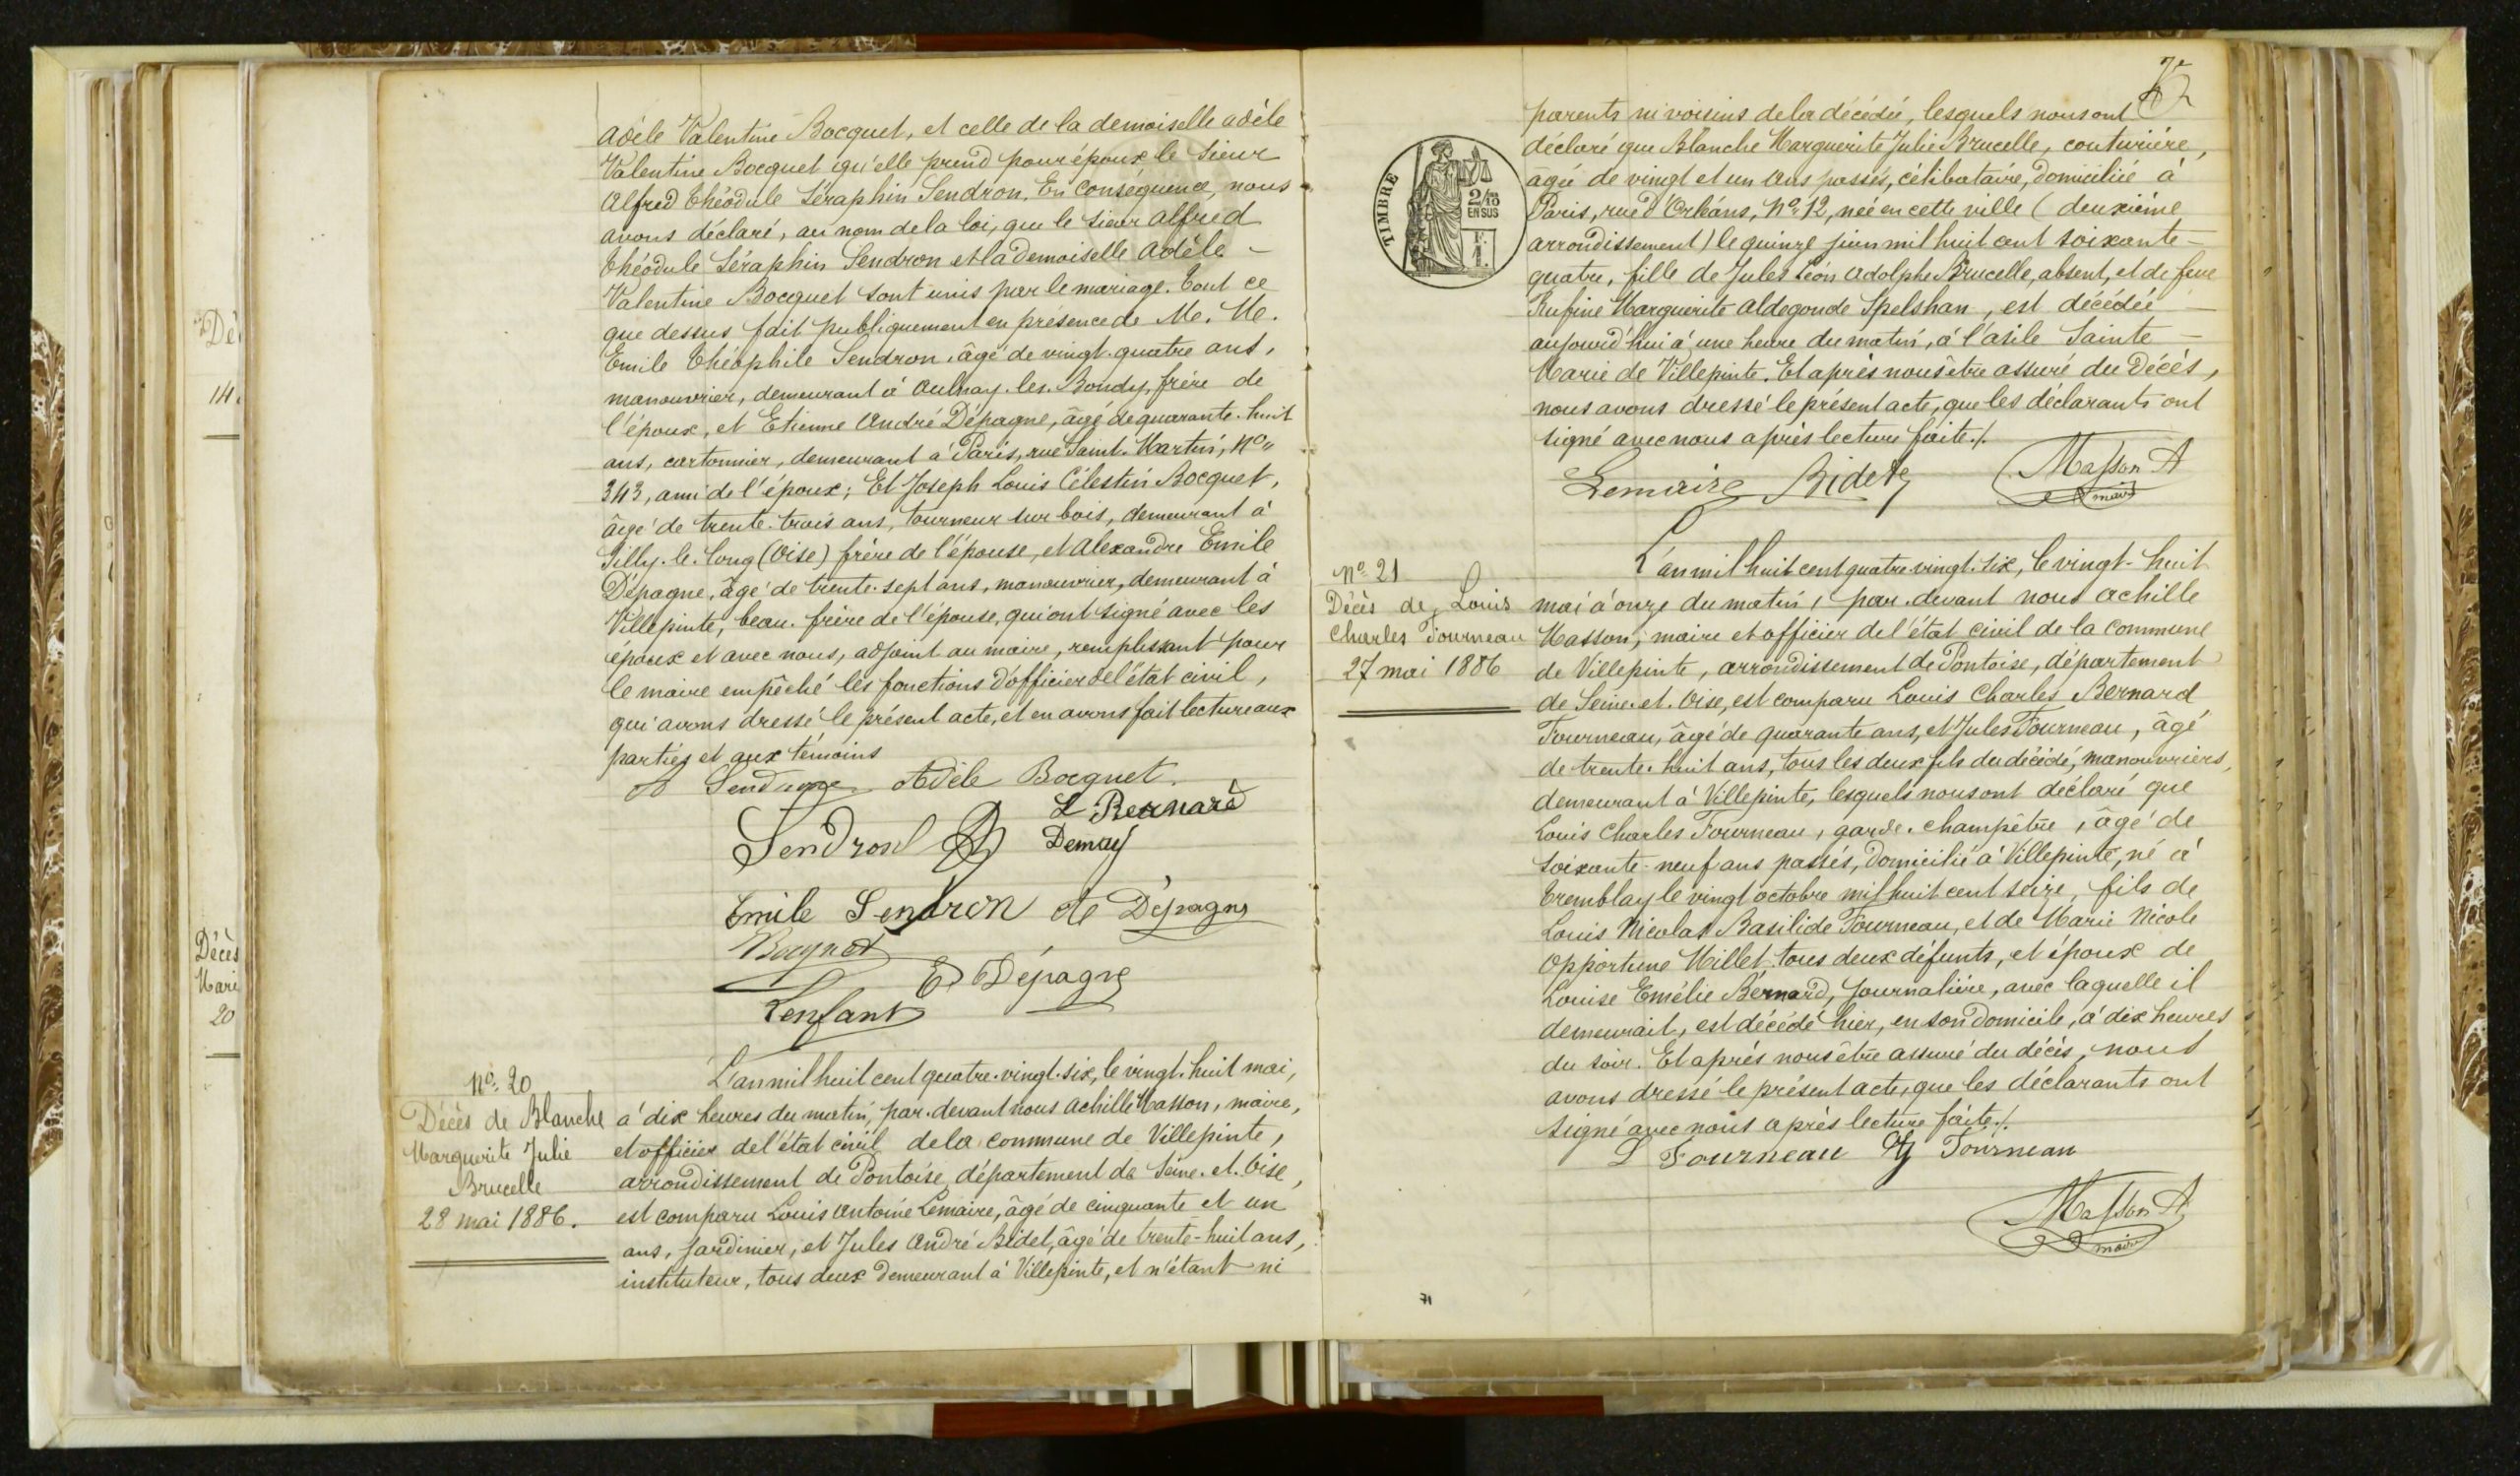 Adèle Valentine Bocquet, et celle de la demoiselle Adèle
Valentine Bocquet qu'elle prend pour époux le sieur
Alfred Théodule Séraphin Sendron. En conséquence, nous
avons déclaré, au nom de la loi, que le sieur Alfred
Théodule Séraphin Sendron et la demoiselle Adèle -
Valentine Bocquet sont unis par le mariage. Tout ce
que dessus fait publiquement en présence de M. M.
Emile Théophile Sendron, âgé de vingt-quatre ans,
manouvrier, demeurant à Aulnay-les-Bondy, frère de
l'époux, et Etienne André Dépagne, âgé de quarante-huit
ans, cartonnier, demeurant à Paris, rue Saint-Martin, No
343, ami de l'époux; Et Joseph Louis Célestin Bocquet,
âgé de trente-trois ans, tourneur sur bois, demeurant à
Silly-le-Long (Oise) frère de l'épouse, et Alexandre Emile
Dépagne, âgé de trente-sept ans, manouvrier, demeurant à
Villepinte, beau-frère de l'épouse, qui ont signé avec les
époux et avec nous, adjoint au maire, remplissant pour
le maire empêché les fonctions d'officier de l'état civil,
qui avons dressé le présent acte, et en avons fait lecture aux
parties et aux témoins
Adèle Bocquet
L Bernard
Sendron Demay
Emile Sendron Dépagne
Bocquet
E Dépagne
Lenfant
No 20
Décès de Blanche
Marguerite Julie
Brucelle
28 mai 1886.
L'an mil huit cent quatre-vingt-six, le vingt-huit mai,
à dix heures du matin, par-devant nous Achille Masson, maire,
et officier de l'état civil de la commune de Villepinte,
arrondissement de Pontoise, département de Seine-et-Oise,
est comparu Louis Antoine Lemaire, âgé de cinquante et un
ans, jardinier, et Jules André Bidet, âgé de trente-huit ans,
instituteur, tous deux demeurant à Villepinte, et n'étant ni
parents ni voisins de la décédée, lesquels nous ont
déclaré que Blanche Marguerite Julie Brucelle, couturière,
agée de vingt et un ans passés, célibataire, domiciliée à
Paris, rue d'Orléans, No 12, née en cette ville (deuxième
arrondissement) le quinze juin mil huit cent soixante-
quatre, fille de Jules Léon Adolphe Brucelle, absent, et de feue
Rufine Marguerite Aldegonde Spelshan, est décédée -
aujourd'hui à une heure du matin, à l'asile Sainte -
Marie de Villepinte. Et après nous être assuré du décès,
nous avons dressé le présent acte, que les déclarants ont
signé avec nous après lecture faite./.
Lemaire Bidet Masson A
maire
TIMBRE
2/10 EN SUS
No 21
Décès de Louis
Charles Fourneau
27 mai 1886
L'an mil huit cent quatre-vingt-six, le vingt-huit
mai à onze du matin, par-devant nous Achille
Masson, maire et officier de l'état civil de la commune
de Villepinte, arrondissement de Pontoise, département
de Seine-et-Oise, est comparu Louis Charles Bernard
Fourneau, âgé de quarante ans, et Jules Fourneau, âgé
de trente-huit ans, tous les deux fils du décédé, manouvriers,
demeurant à Villepinte, lesquels nous ont déclaré que
Louis Charles Fourneau, garde-champêtre, âgé de
soixante-neuf ans passés, domicilié à Villepinte, né à
Tremblay le vingt octobre mil huit cent seize, fils de
Louis Nicolas Basilide Fourneau, et de Marie Nicole
Opportune Millet, tous deux défunts, et époux de
Louise Emélie Bernard, journalière, avec laquelle il
demeurait, est décédé hier, en son domicile, à dix heures
du soir. Et après nous être assuré du décès, nous
avons dressé le présent acte, que les déclarants ont
signé avec nous après lecture faite./.
L Fourneau Fourneau
Masson A
maire
71